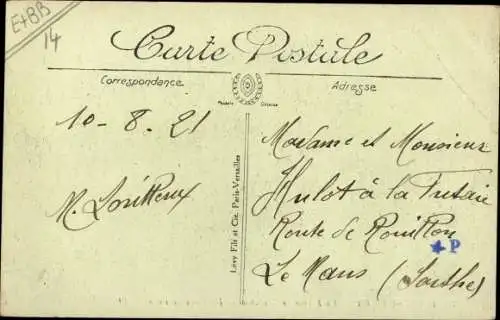 E+BB
14
Carte Postale
Correspondance
Adresse
10-8.21
Madame et Monsieur
Hulot à la Futaie
Route de Rouillon
Le Mans (Sarthe)
M.
P
Lévy Fils et Cie, Paris-Versailles